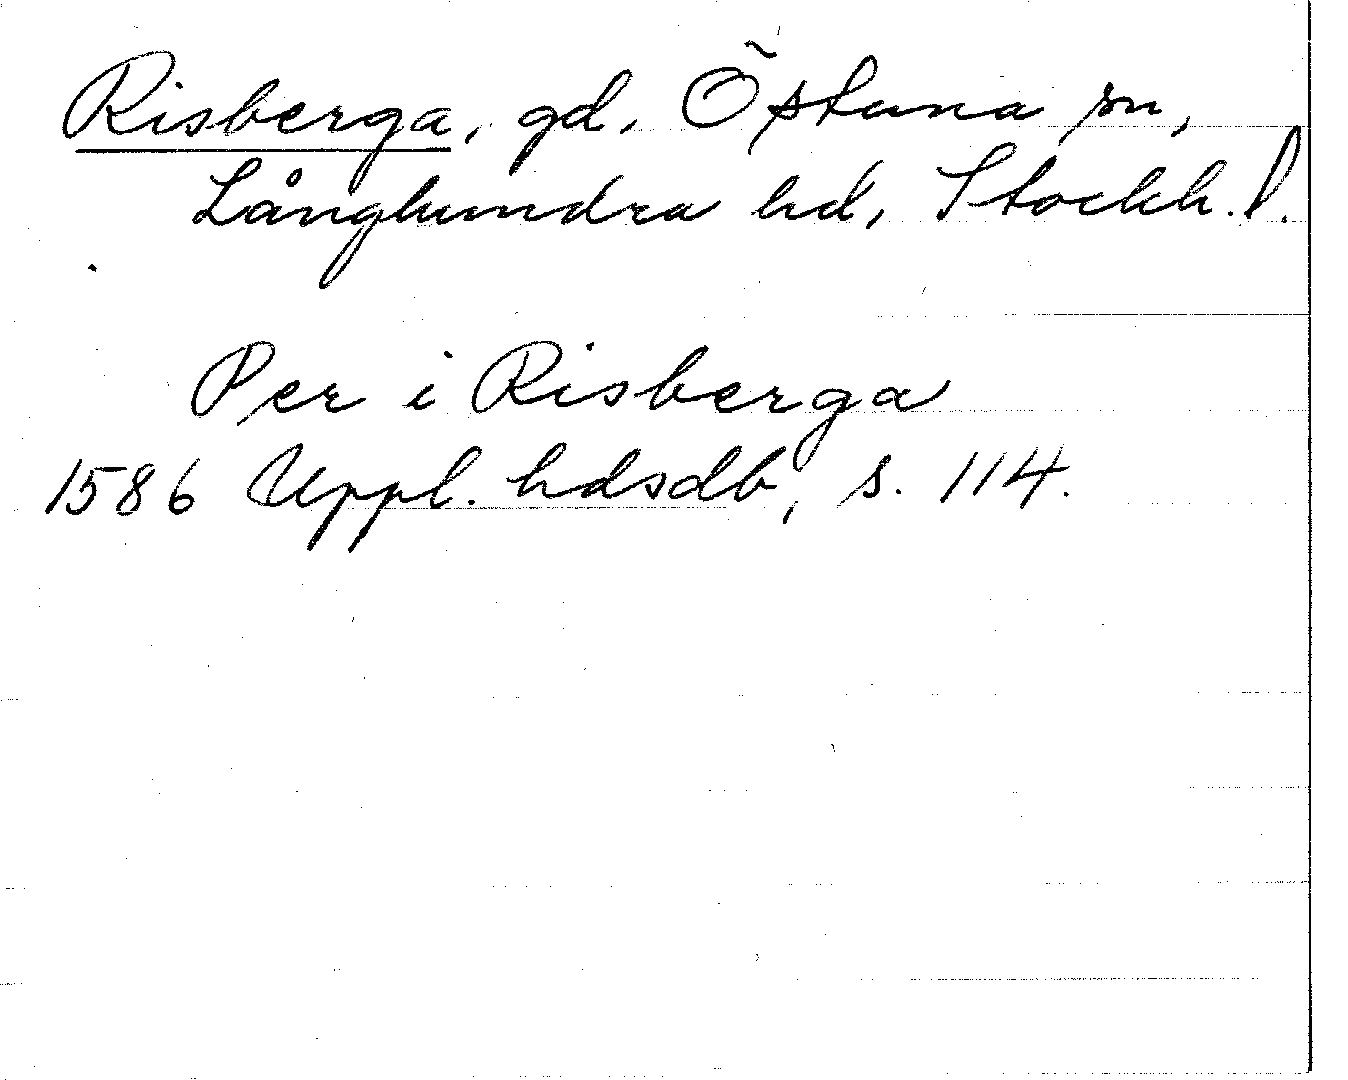 Risberga, gd, Östuna sn,
Långhundra hd, Stockh. l.
Per i Risberga
1586 Uppl. hdsdb, s. 114.